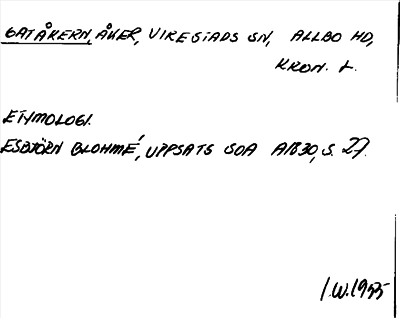 GATÅKERN, ÅKER, VIRESTADS SN, ALLBO HD,
KRON. L.
ETYMOLOGI.
ESBJÖRN BLOHMÉ, UPPSATS SOA AB30, S. 27.
I.W. 1955